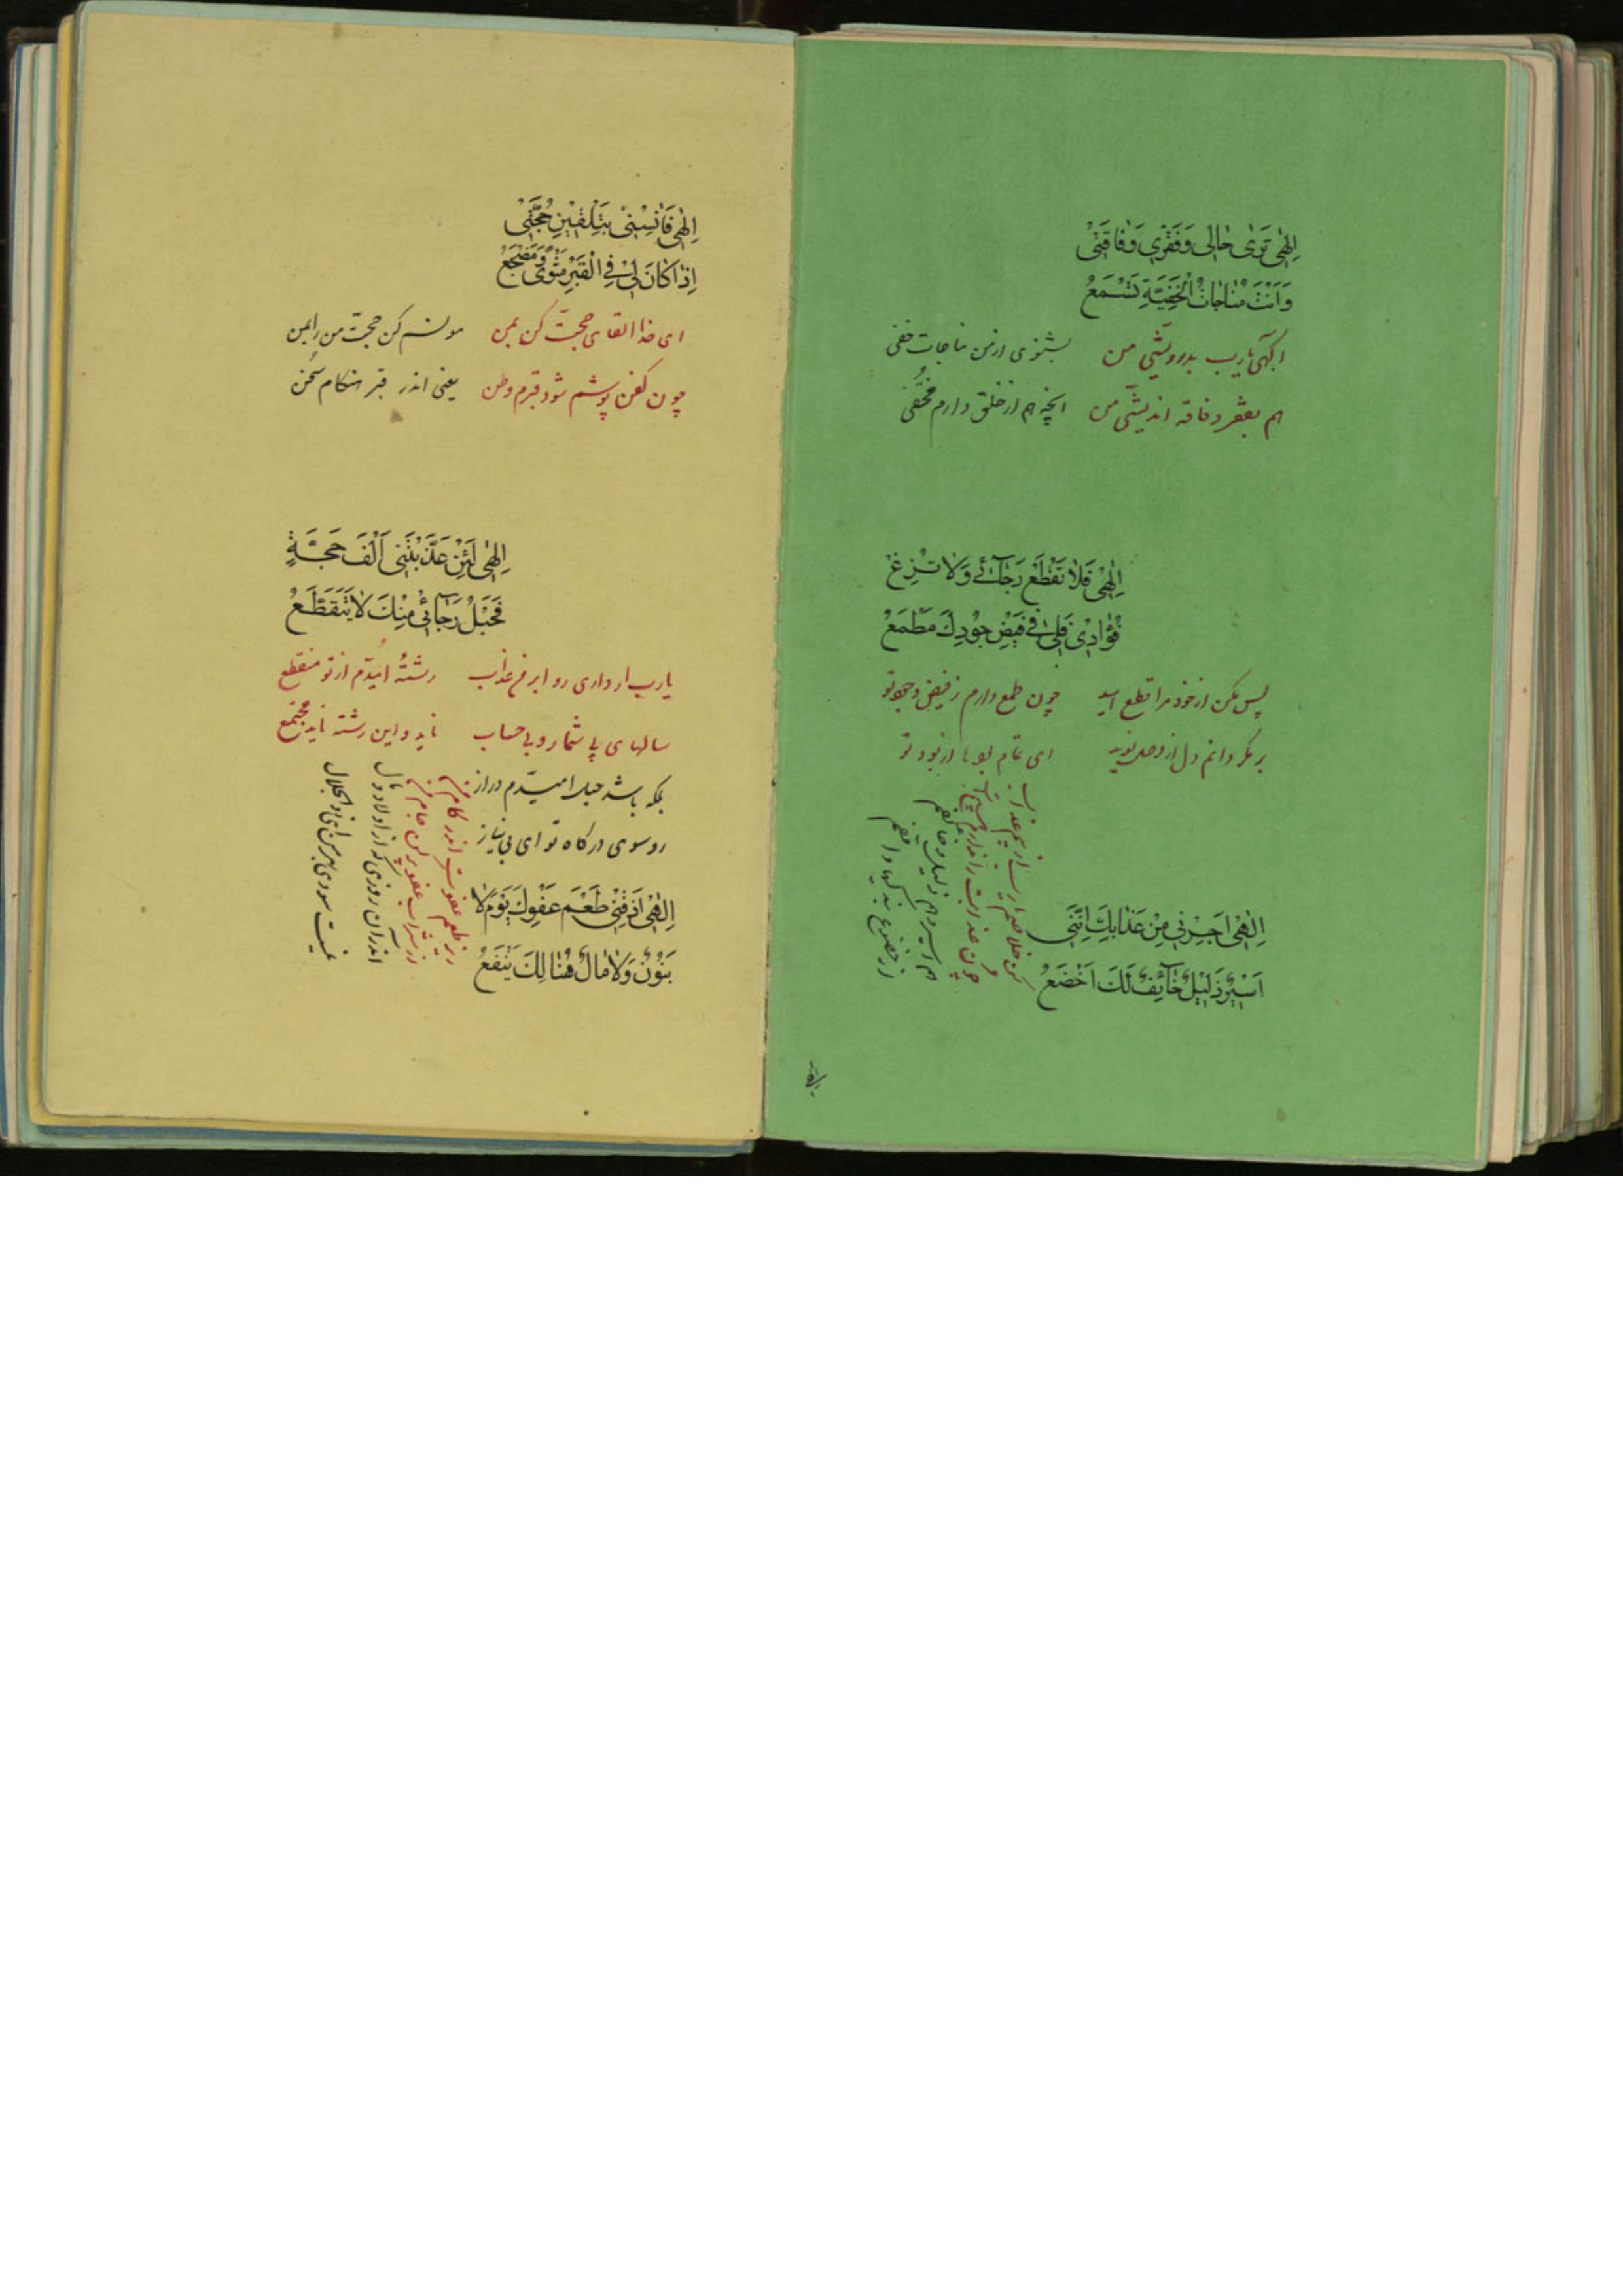 اِلٰهی تَرٰی حٰالی وَفَقْری وَفٰاقَتیْ
وَاَنْتَ مُنٰاجٰاتیْ الْخَفِیَّةِ تَسْمَعُ
اگهی یارب بدرویشی من بشنوی از من مناجات خفی
هم بفقر و فاقه اندیشی من انچه هم از خلق دارم مختفی
اِلٰهیْ فَلاٰ تَقْطَعْ رَجٰائیْ وَلاٰ تُزِغْ
فُؤٰادیْ فَلیٰ فیْ فَیْضِ جُوْدِكَ مَطْمَعُ
پس مکن از خود مرا قطع امید چون طمع دارم ز فیض وجود تو
بر مگردانم دل از وصل نوید ای تمام بودها از بود تو
اِلٰهیْ اَجِرْنیْ مِنْ عَذٰابِكَ اِنَّنیْ
اَسیْرٌ ذَلیْلٌ خٰائِفٌ لَكَ اَخْضَعُ
کن خلاصم از عذاب
چون عذابت را ندارم
هم اسیر و هم ذلیل و خائفم
از خضوع بندگیها واقفم
اِلٰهی فَاٰنِسْنیْ بِتَلْقیْنِ حُجَّتیْ
اِذٰا کٰانَ لیْ فی الْقَبْرِ مَثْویً وَمَضْجَعُ
ای خدا القای حجت کن بمن مونسم کن حجت من را بمن
چون کفن پوشم شود قبرم وطن یعنی اندر قبر هنکام سخن
اِلٰهی لَئِنْ عَذَّبْتَنی اَلْفَ حَجَّةٍ
فَحَبْلُ رَجٰائیْ مِنْكَ لاٰ یَتَقَطَّعُ
یارب ار داری روا بر من عذاب رشتهٔ امیّدم از تو منقطع
سالهای بی شمار و بی حساب ناید و این رشته ناید مجتمع
بلکه باشد حبل امیّدم دراز
رو سوی درکاه تو ای بی نیاز
اِلٰهی اَذِقْنیْ طَعْمَ عَفْوِكَ یَوْمَ لاٰ
بَنُوْنٌ وَلاٰ مٰالٌ هُنٰالِكَ یَنْفَعُ
ریز طعم عفوت اندر کام من
از شراب عفو پر کن جام من
اندر آن روزی که از اولاد و مال
نیست سودی بهر من ای ذو الجلال